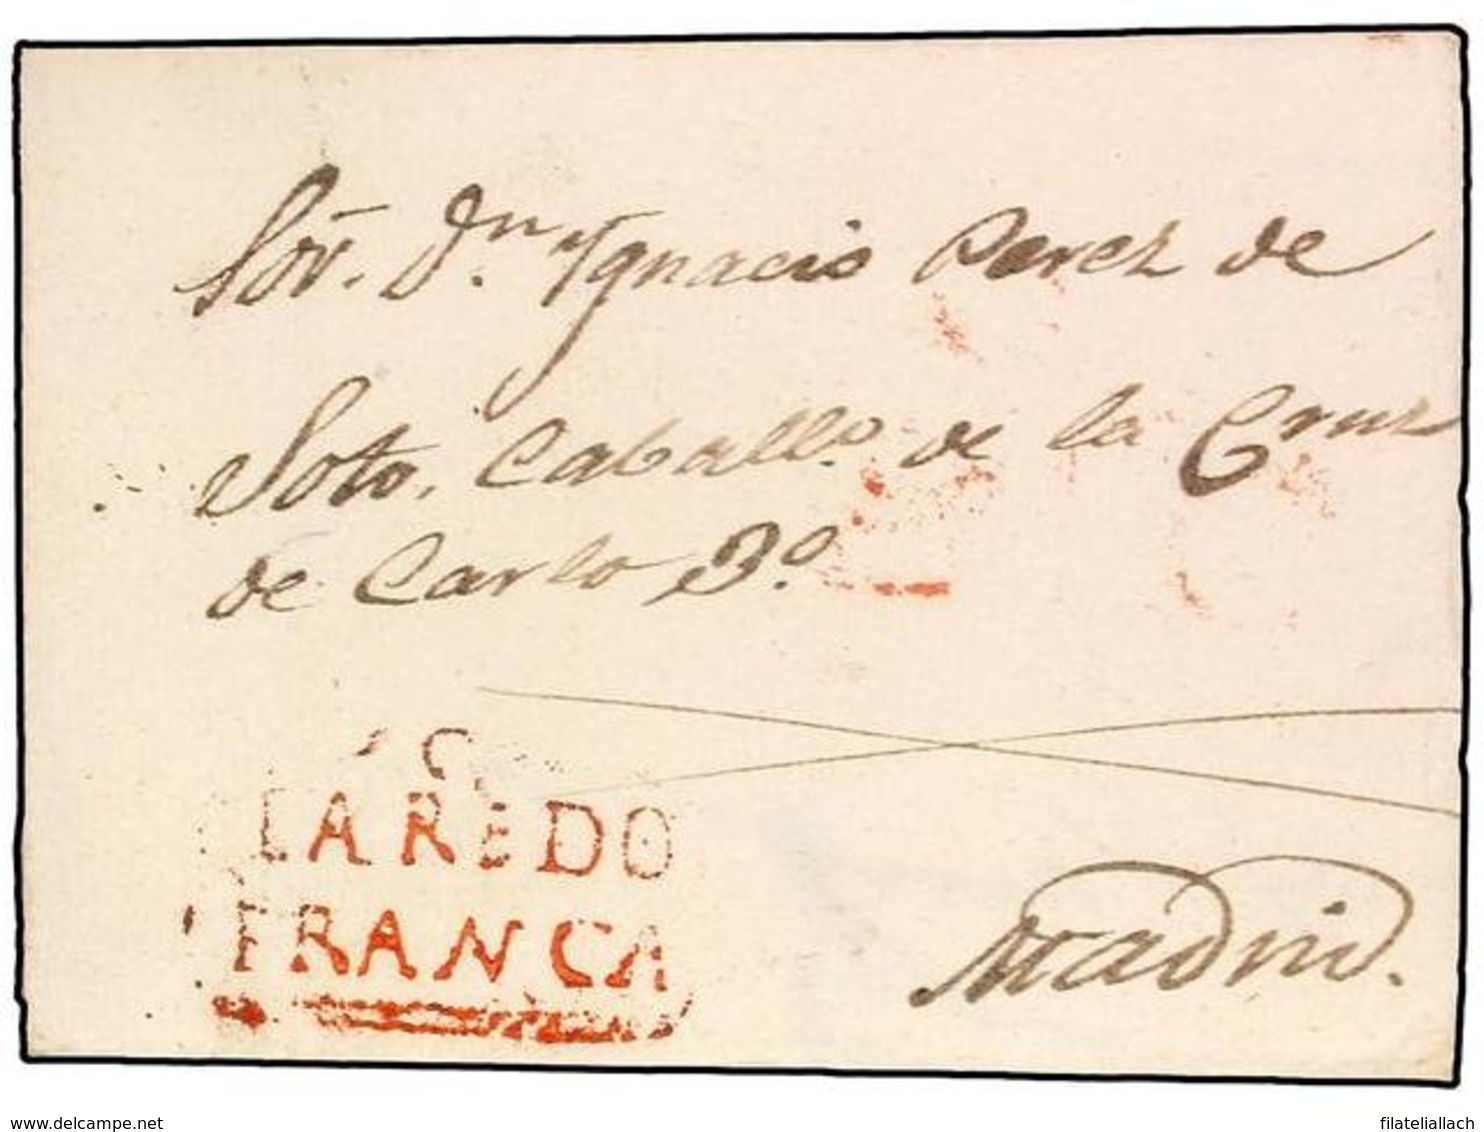 Sor. Dn. Ygnacio Perez de
Soto, Caballo. de la Cruz
de Carlo 3º.
C
LAREDO
FRANCA
Madrid.
delcampe.net
filateliallach